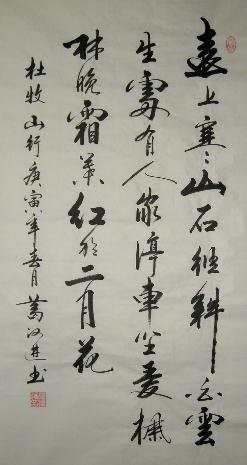 遠上寒山石徑斜白雲
生處有人家停車坐愛楓
林晚霜葉紅於二月花
杜牧山行庚寅年春月